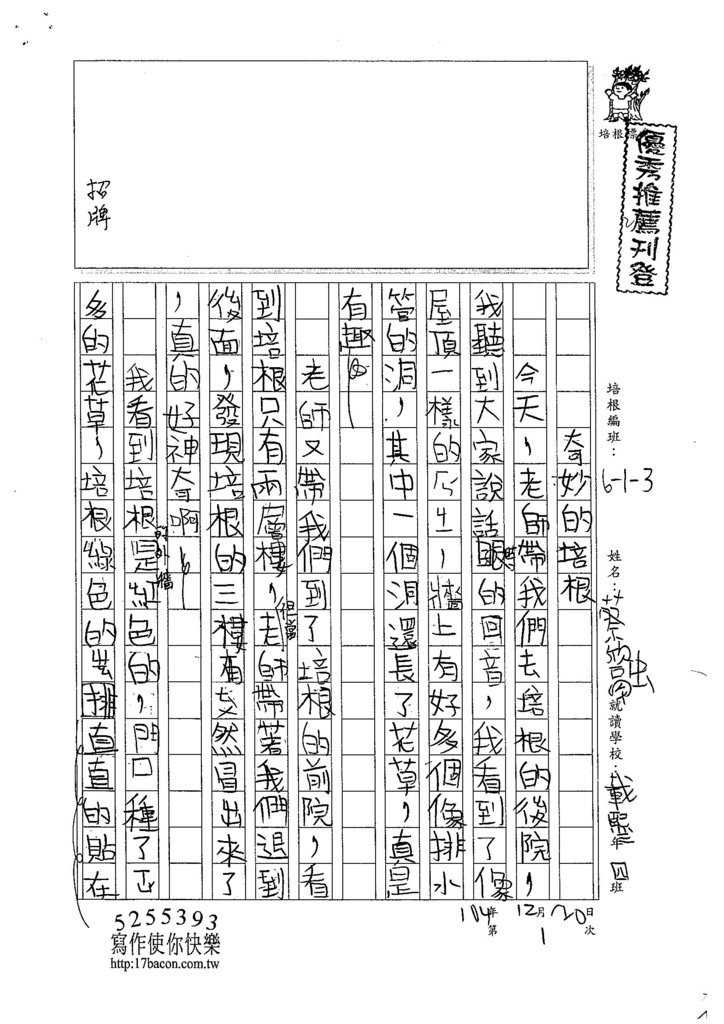 培根標
優秀推薦刊登
培根編班：6-1-3
姓名：蔡
就讀學校：載熙 年 四 班
104年 12月 20日
第 1 次
奇妙的培根
今天，老師帶我們去培根的後院，
我聽到大家說話的回音，我看到了像
屋頂一樣的，牆上有好多個像排水
管的洞，其中一個洞還長了花草，真是
有趣！
老師又帶我們到了培根的前院，看
到培根只有兩層樓，但當老師帶著我們退到
後面，發現培根的三樓有突然冒出來了
，真的好神奇啊！
我看到培根的外牆是紅色的，門口種了
多的花草，培根綠色的排直直的貼在
招牌
5255393
寫作使你快樂
http:17bacon.com.tw